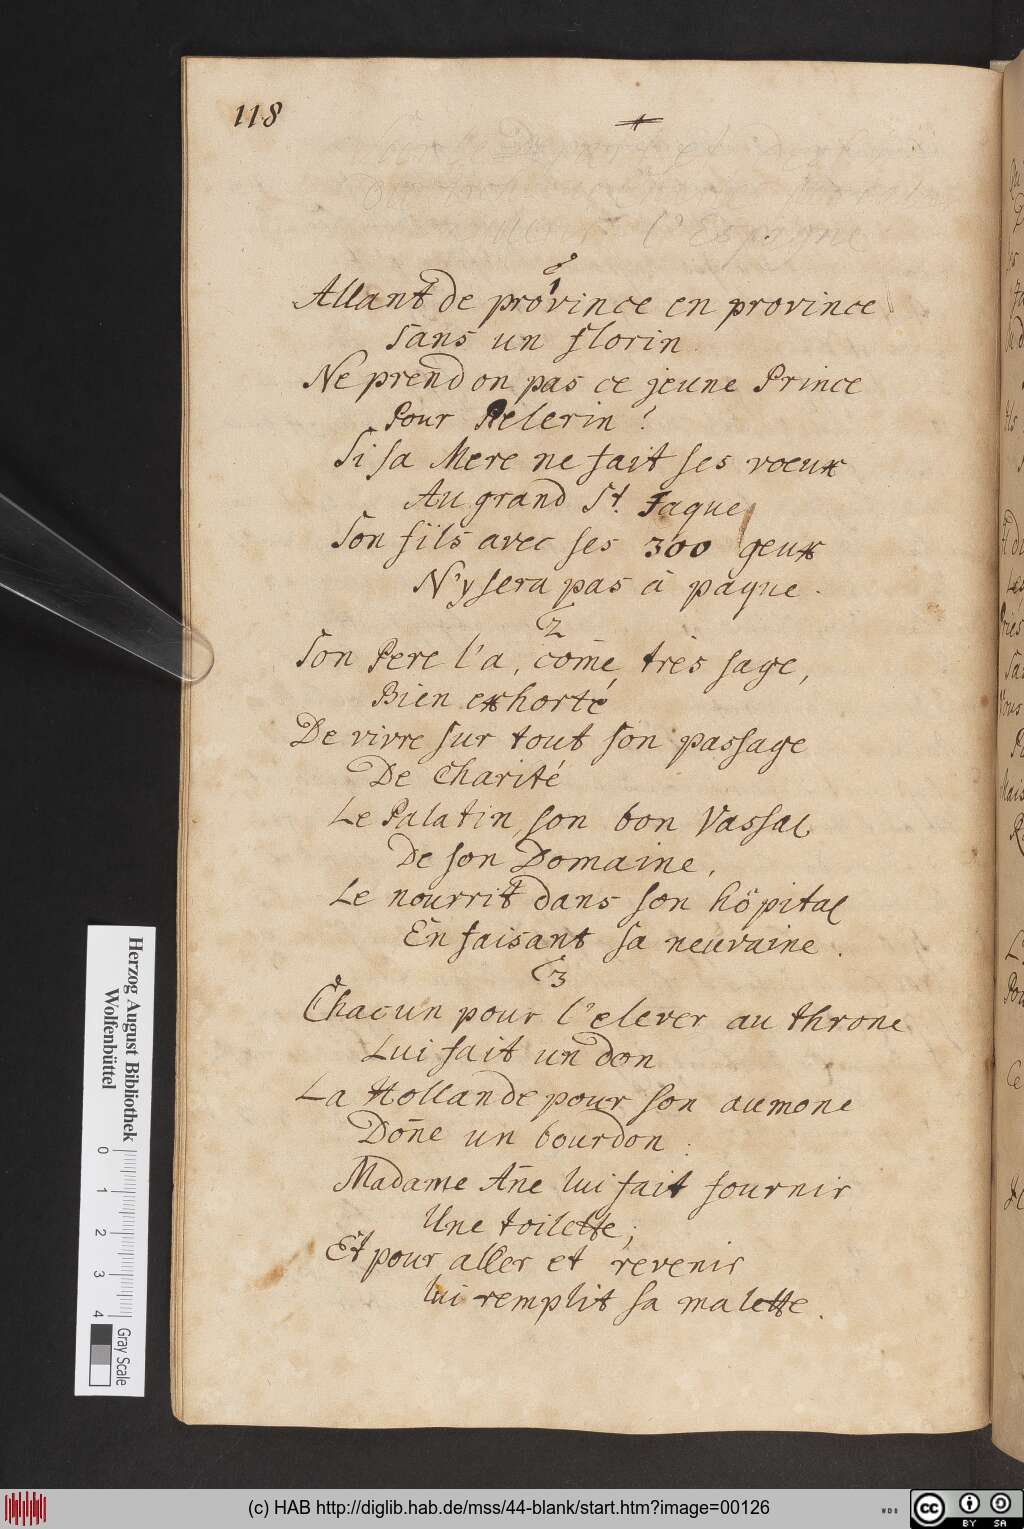 118
1
Allant de province en province
Sans un florin
Ne prend on pas ce jeune Prince
Pour Pelerin?
Si sa Mere ne fait ses voeux
Au grand St. Jaque,
Son fils avec ses 300 geux
N'y sera pas à paque.
2
Son Pere l'a, come, très sage,
Bien exhorté
De vivre sur tout son passage
De Charité
Le Palatin, son bon Vassal
De son Domaine,
Le nourrit dans son hôpital
En faisant sa neuvaine.
3
Chacun pour l'elever au throne
Lui fait un don
La Hollande pour son aumone
Done un bourdon.
Madame Añe lui fait fournir
Une toilette;
Et pour aller et revenir
lui remplit sa malette.
Herzog August Bibliothek
Wolfenbüttel
0 1 2 3 4
Gray Scale
(c) HAB http://diglib.hab.de/mss/44-blank/start.htm?image=00126
WDB
cc BY SA